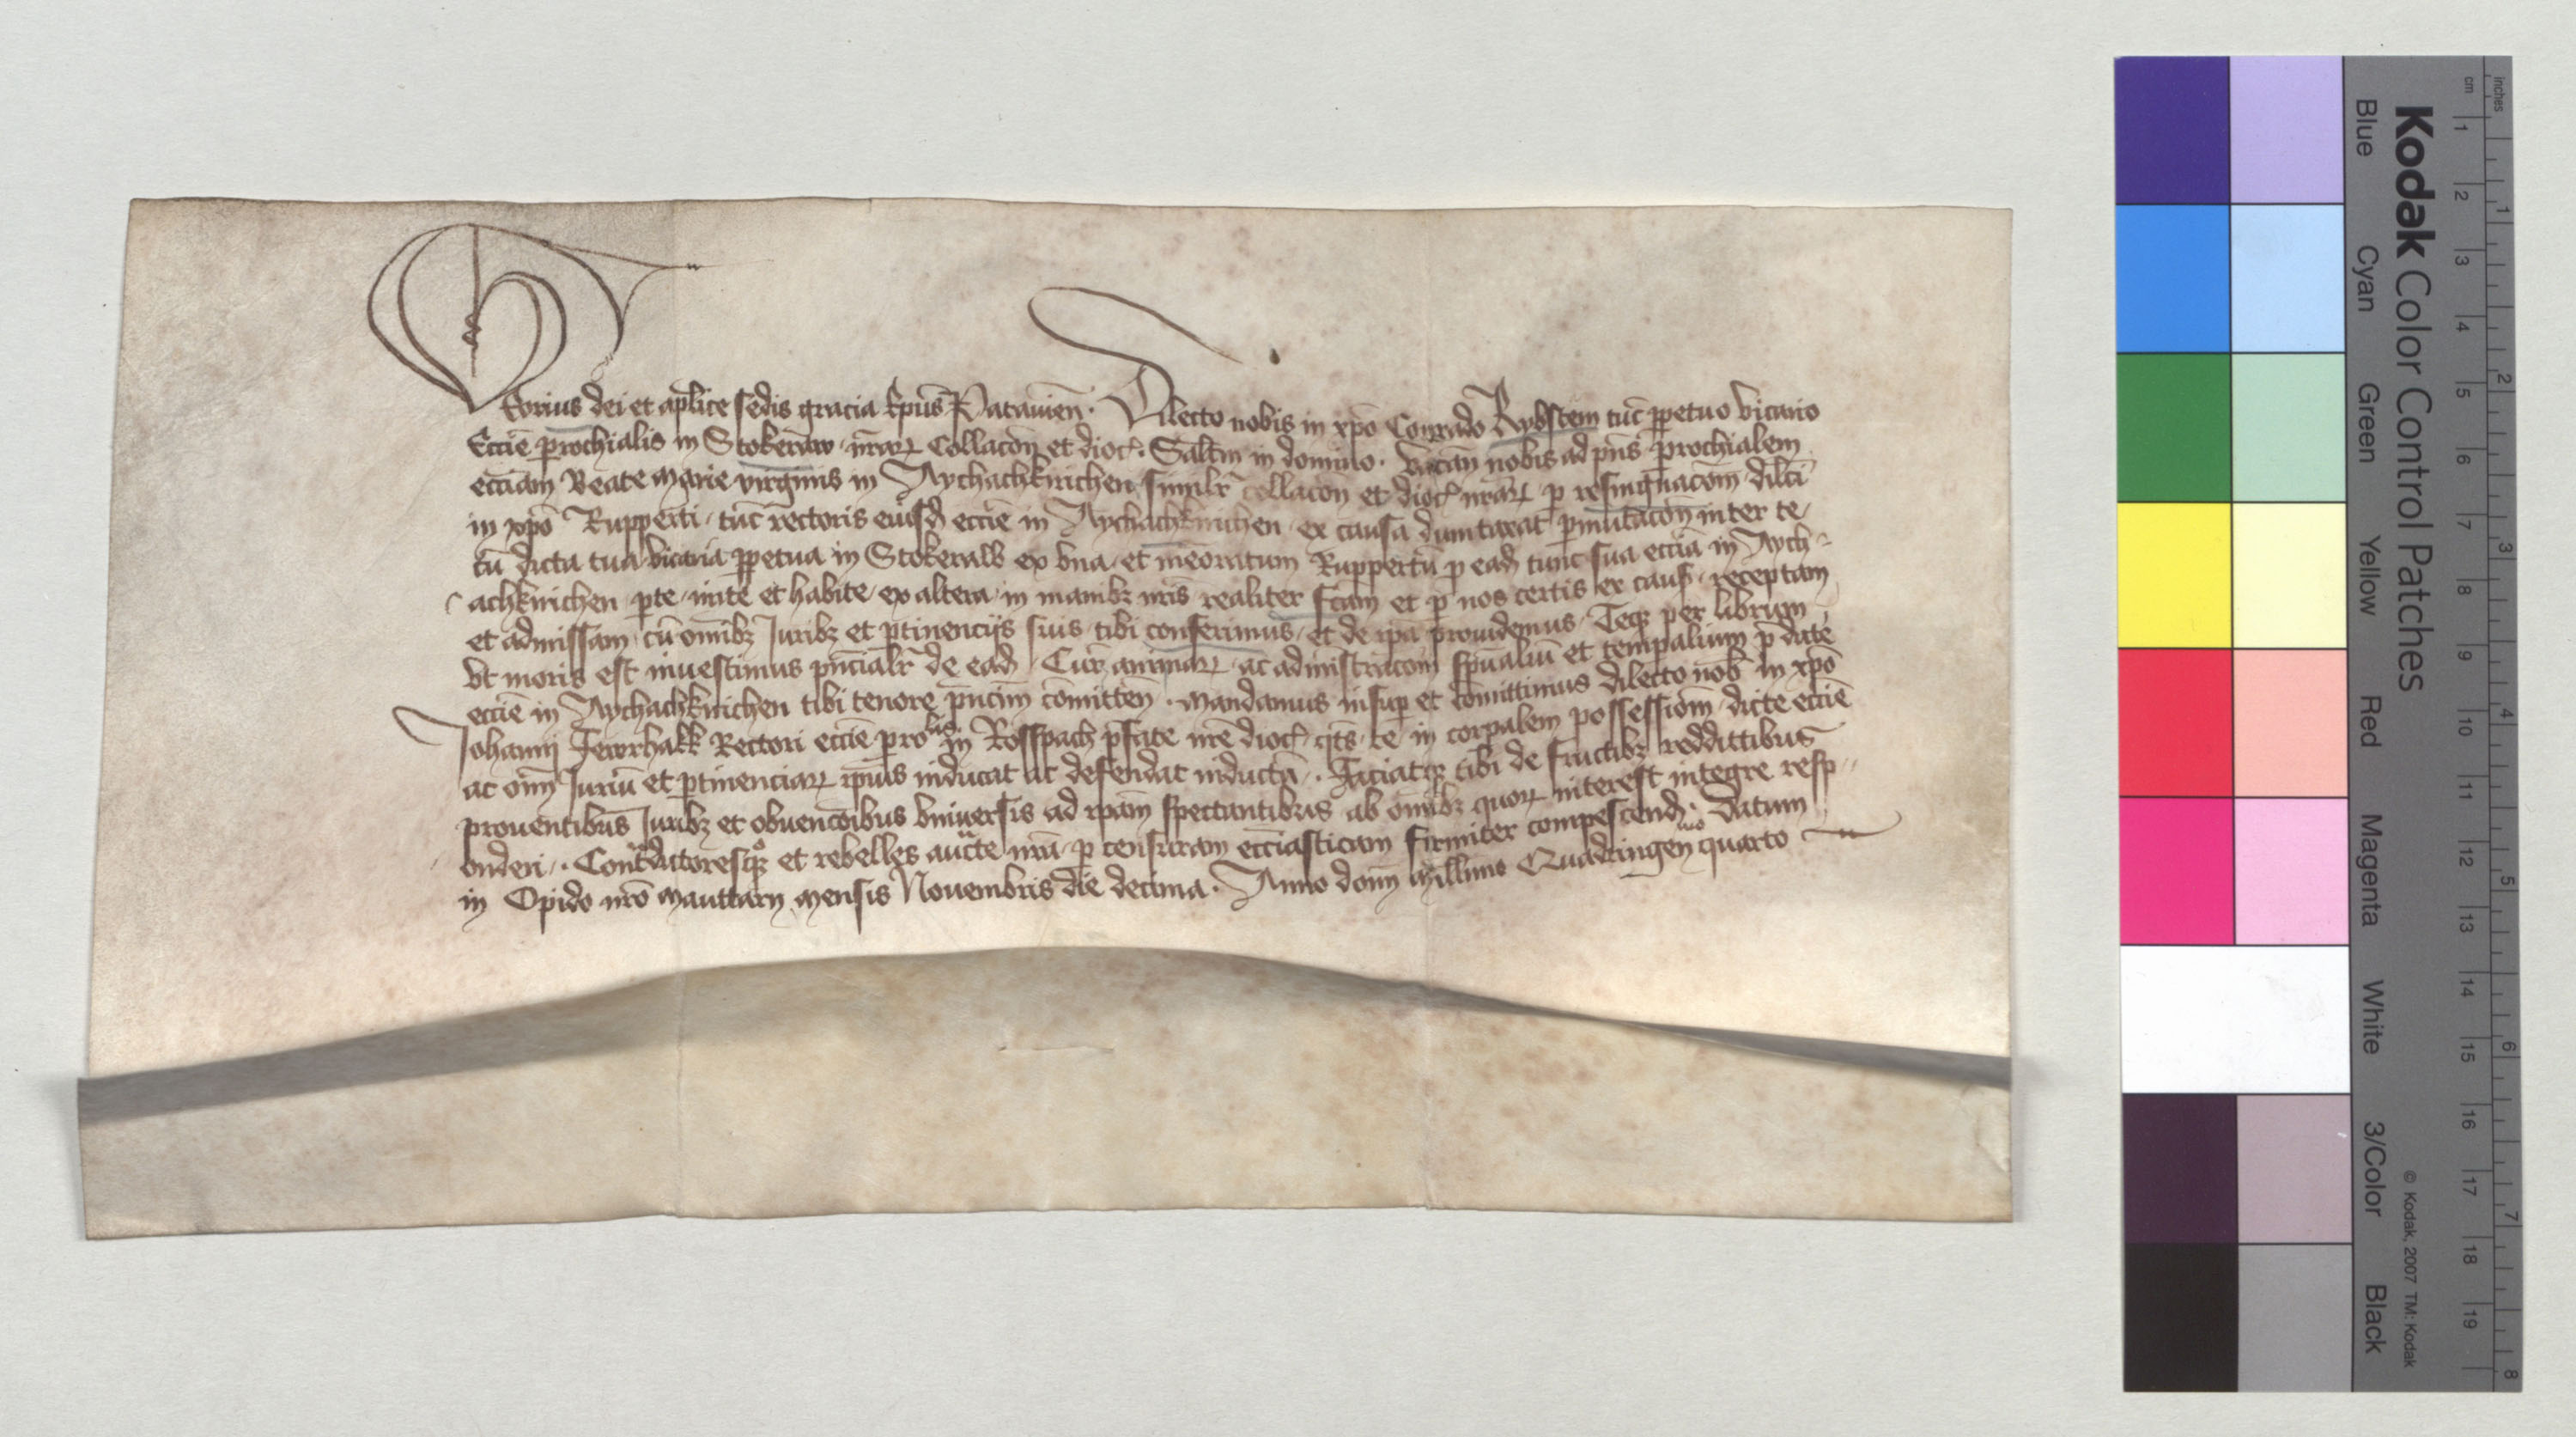 Georius dei et aplice sedis gracia Ep̄us Patauien̄. Dilecto nobis in xp̄o Conrado Rybstein tūc ꝑpetuo vicario
Ecc̄ie ꝑrochialis in Stokeraw nr̄arꝝ Collacōn et dioc̄. Salt̄m in domino. Vacan̄ nobis ad pn̄s ꝑrochialem
ecc̄iam Beate Marie virginis in Aychachkirichen similr̄ collacōn et dioc̄ nr̄arꝝ ꝑ resingnacōm dilc̄i
in xp̄o Rupperti tūc rectoris eiusd̄ ecc̄ie in Aychachkirichen ex causa dumtaxat ꝑmutacōn inter te
cū dicta tua vicaria ꝑpetua in Stokeraw ex vna et meōratum Ruppertū ꝑ ead̄ tunc sua ecc̄ia in Aych-
achkirichen ꝑte inite et habite ex altera in manibꝫ nr̄is realiter fc̄am et ꝑ nos certis ex caus̄ receptam
et admissam cū om̄ibꝫ Juribꝫ et ꝑtinencijs suis tibi conferimus et de ip̄a prouidemus. Teqꝫ per librum
vt moris est inuestimus pn̄cialr̄ de ead̄ Cur̄ animarꝝ ac administracōm sp̄ualiū et tempalium p̄dicte
ecc̄ie in Aychachkirichen tibi tenore pn̄cim cōmitten̄. Mandamus insuꝑ et cōmittimus dilecto nob̄ in xp̄o
Johanni Jewrhakk Rectori ecc̄ie ꝑrolis in Rosspach p̄fate nr̄e dioc̄ qt̄s te in corꝑalem possessiōm dicte ecc̄ie
ac om̄ Juriū et ꝑtinenciarꝝ ip̄ius inducat ac defendat inductū. Faciatqꝫ tibi de fructibꝫ reddittibus
prouentibus Juribꝫ et obuenc̄oibus vniuersis ad ip̄am spectantibus ab om̄ibꝫ quorꝝ interest integre resp-
onderi. Contrad̄ictoresqꝫ et rebelles auc̄te nr̄a ꝑ censuram ecc̄iasticam firmiter compescend̄. Datum
in Opido nr̄o Mauttarn Mensis Nouembris die decima. Anno dom̄ Millimo Quadringenmo quarto
Kodak Color Control Patches
Blue Cyan Green Yellow Red Magenta White 3/Color Black
© Kodak, 2007 TM: Kodak
cm 1 2 3 4 5 6 7 8 9 10 11 12 13 14 15 16 17 18 19
inches 1 2 3 4 5 6 7 8